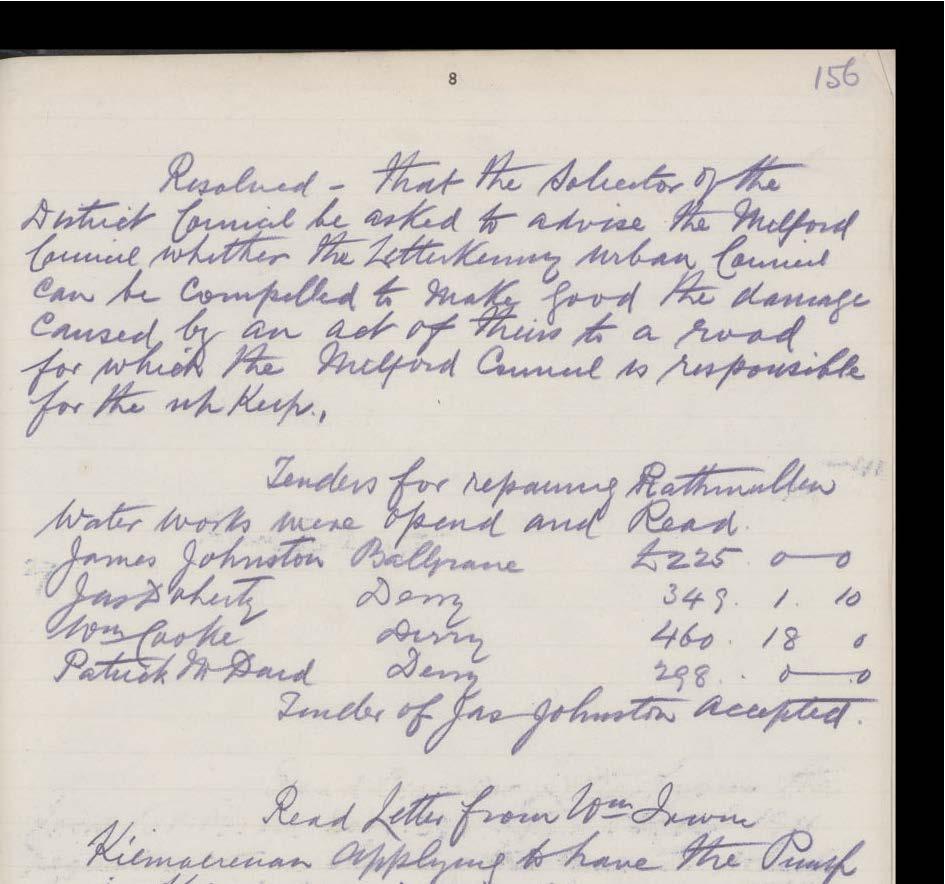 8
156
Resolved - that the Solicitor of the
District Council be asked to advise the Milford
Council whether the Letterkenny urban Council
can be compelled to make good the damage
caused by an act of theirs to a road
for which the Milford Council is responsible
for the up Keep.
Tenders for repairing Rathmullen
Water works were opend and Read.
James Johnston £225 0-0
Jas Doherty Derry 349. 1. 10
Wm Cooke Derry 460. 18 0
Patrick McDaid Derry 298. 0-0
Tender of Jas Johnston accepted.
Read Letter from Wm Irwin
applying to have the Pump